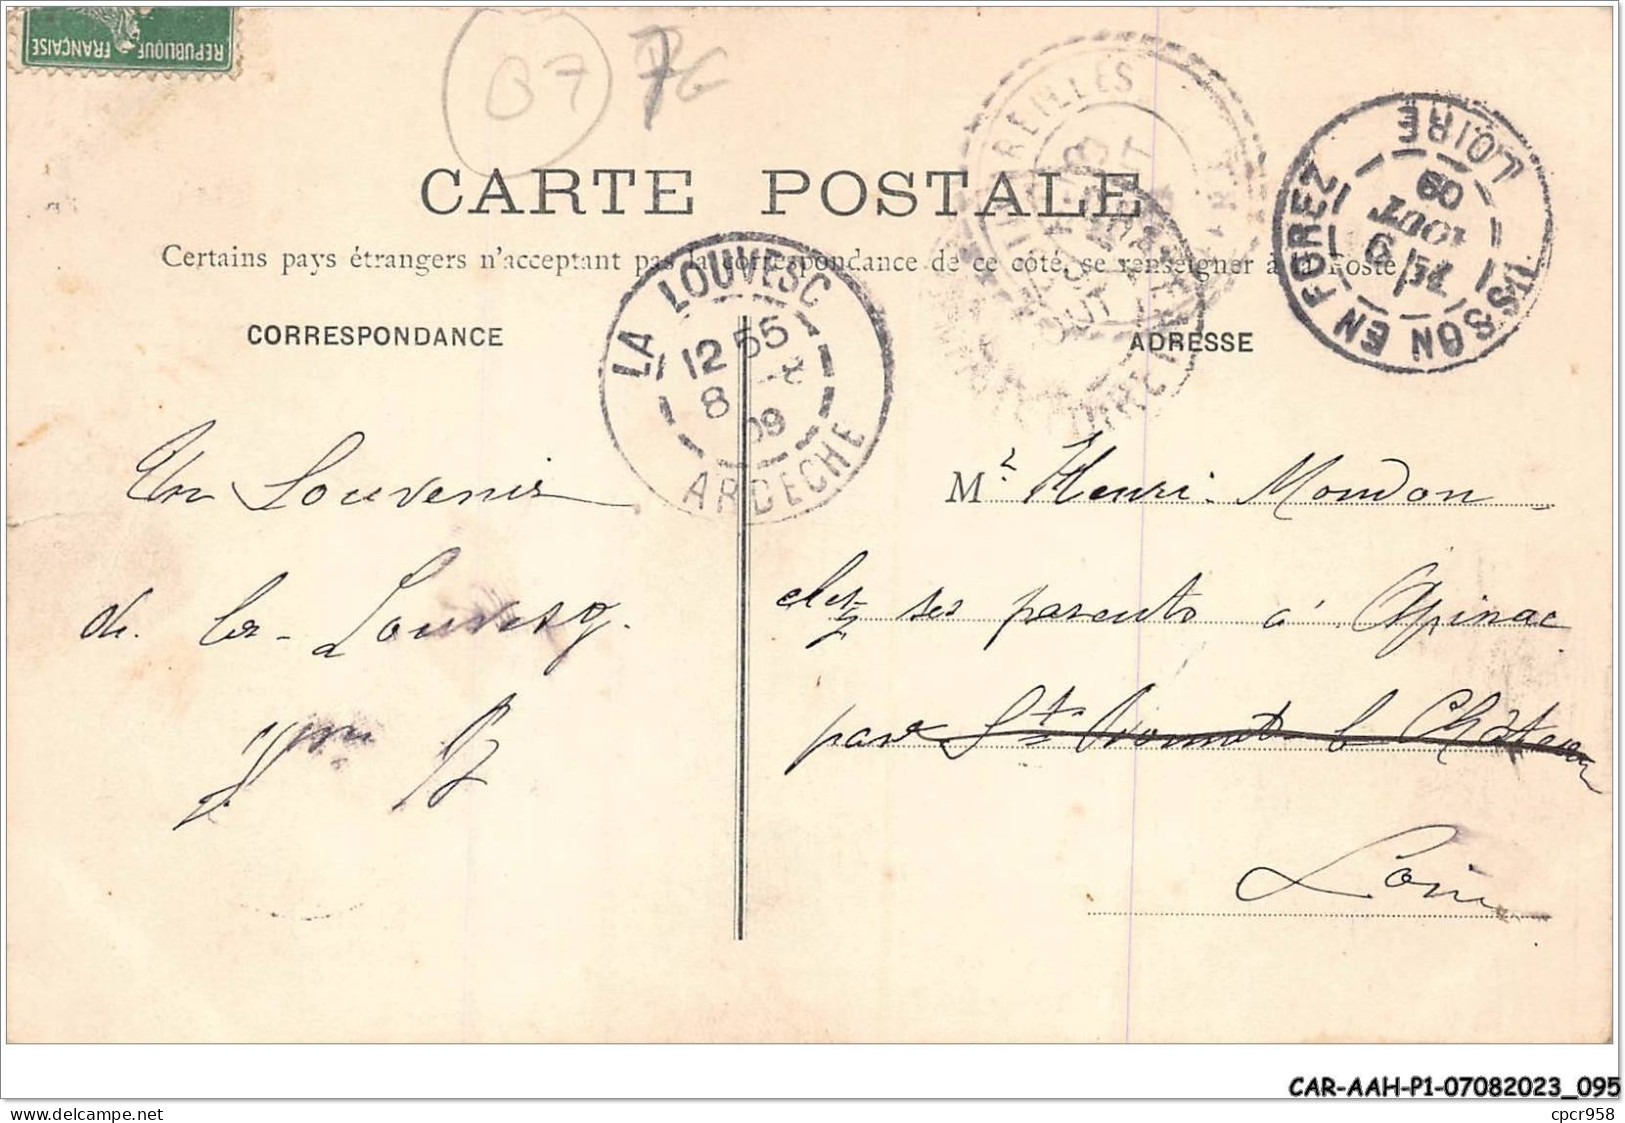 REPUBLIQUE FRANÇAISE
07
CARTE POSTALE
Certains pays étrangers n'acceptent pas la correspondance de ce côté, se renseigner à la Poste
CORRESPONDANCE
ADRESSE
LA LOUVESC
12 55
8 -8
09
ARDECHE
USSON EN FOREZ
9
AOUT
09
LOIRE
Un Souvenir
de la Louvesq.
Mr Henri Moudon
chez ses parents à Apinac
par St Bonnet le Château
Loire
CAR-AAH-P1-07082023_095
cpcr958